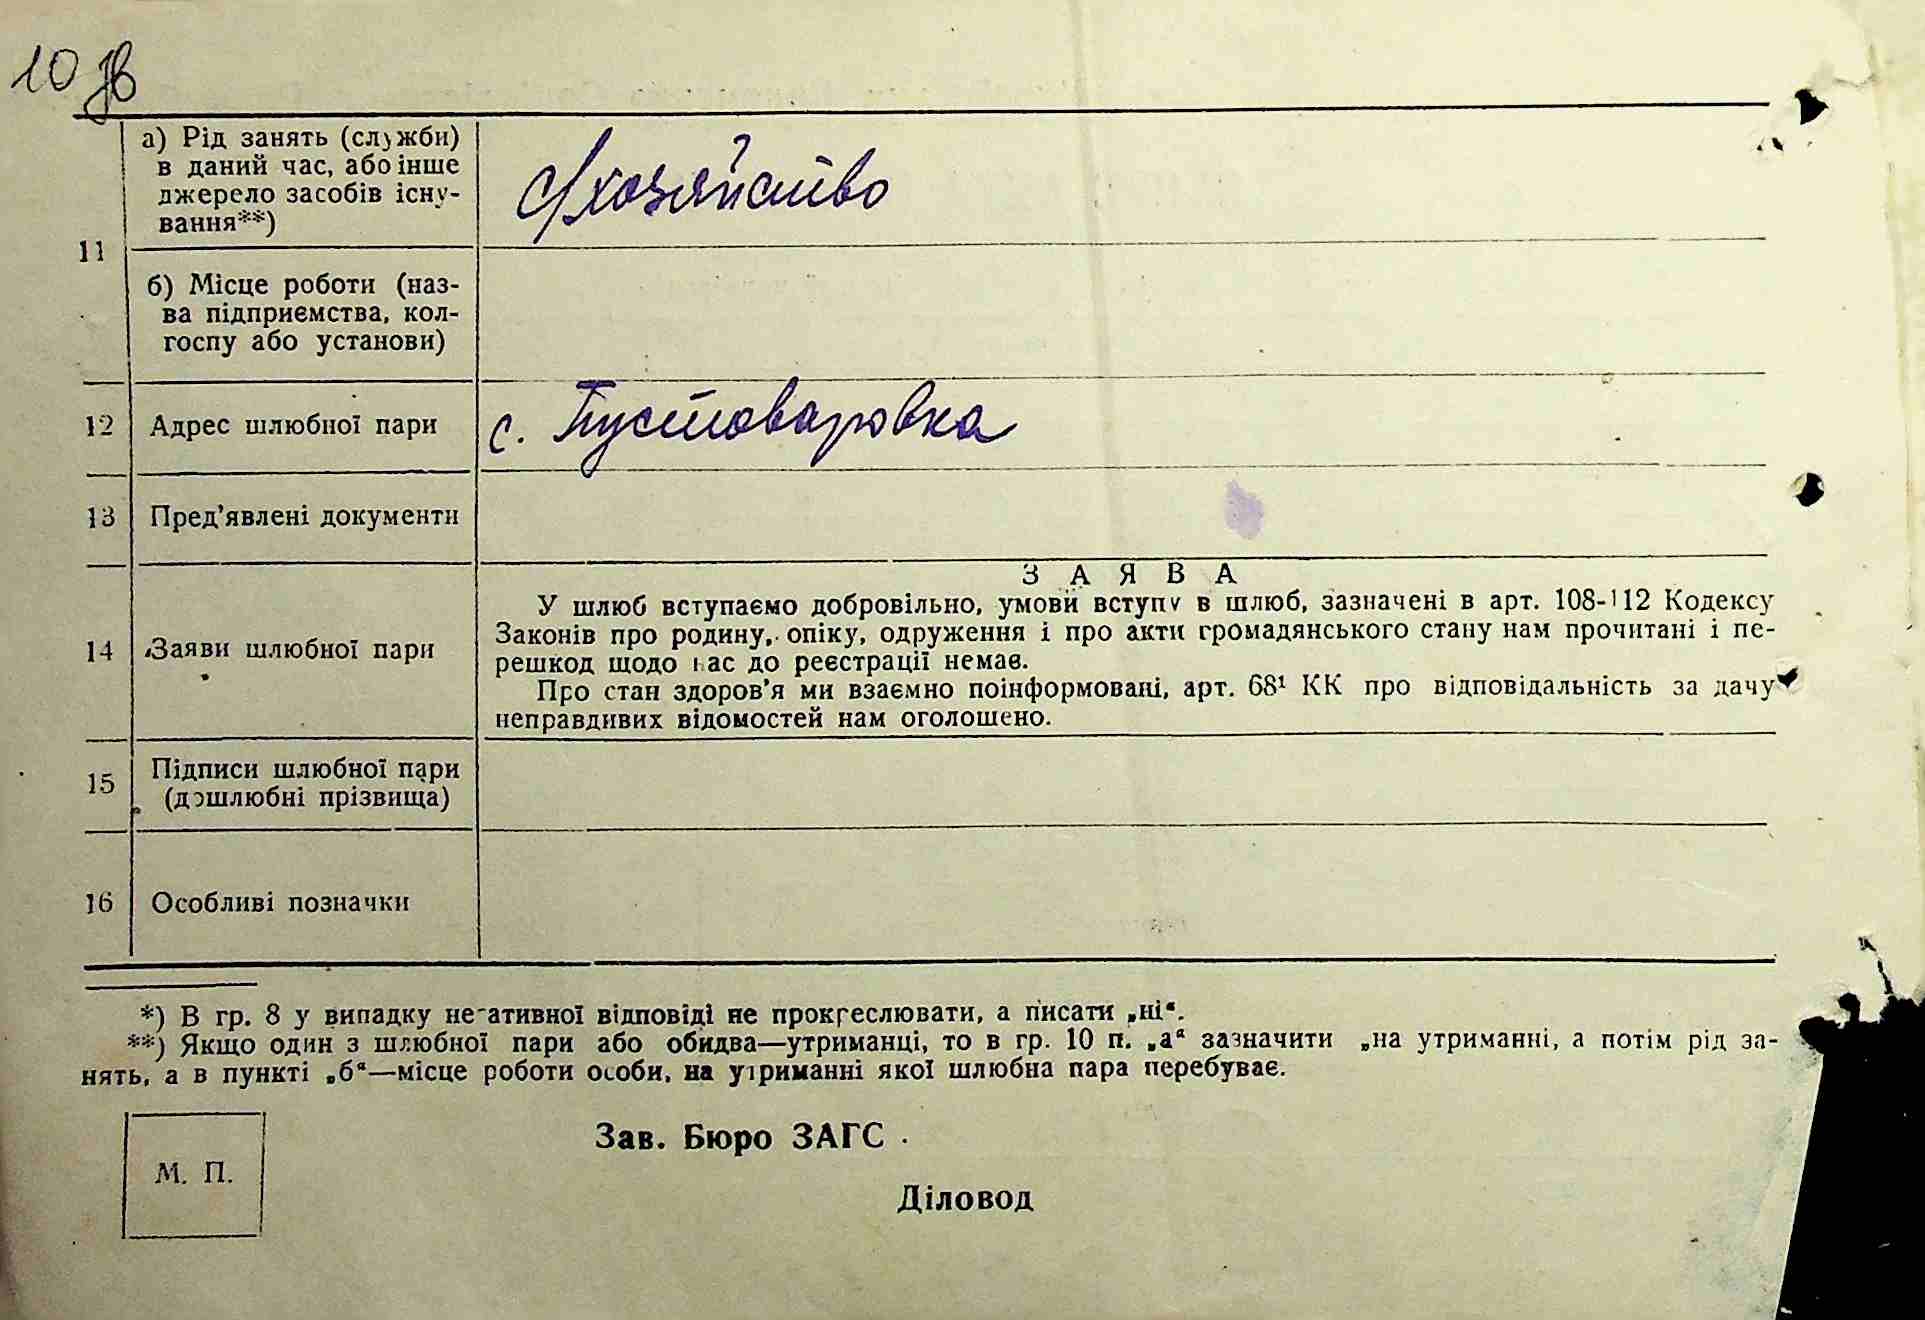 10 зв
11
а) Рід занять (служби)
в даний час, або інше
джерело засобів існу-
вання**)
с/хозяйство
б) Місце роботи (наз-
ва підприємства, кол-
госпу або установи)
12 Адрес шлюбної пари
с. Пустоваровка
13 Пред'явлені документи
14 Заяви шлюбної пари
ЗАЯВА
У шлюб вступаємо добровільно, умови вступу в шлюб, зазначені в арт. 108-112 Кодексу
Законів про родину, опіку, одруження і про акти громадянського стану нам прочитані і пе-
решкод щодо нас до реєстрації немає.
Про стан здоров'я ми взаємно поінформовані, арт. 68¹ КК про відповідальність за дачу
неправдивих відомостей нам оголошено.
15 Підписи шлюбної пари
(дошлюбні прізвища)
16 Особливі позначки
*) В гр. 8 у випадку негативної відповіді не прокреслювати, а писати „ні“.
**) Якщо один з шлюбної пари або обидва—утриманці, то в гр. 10 п. „а“ зазначити „на утриманні, а потім рід за-
нять, а в пункті „б“—місце роботи особи, на утриманні якої шлюбна пара перебуває.
М. П.
Зав. Бюро ЗАГС
Діловод